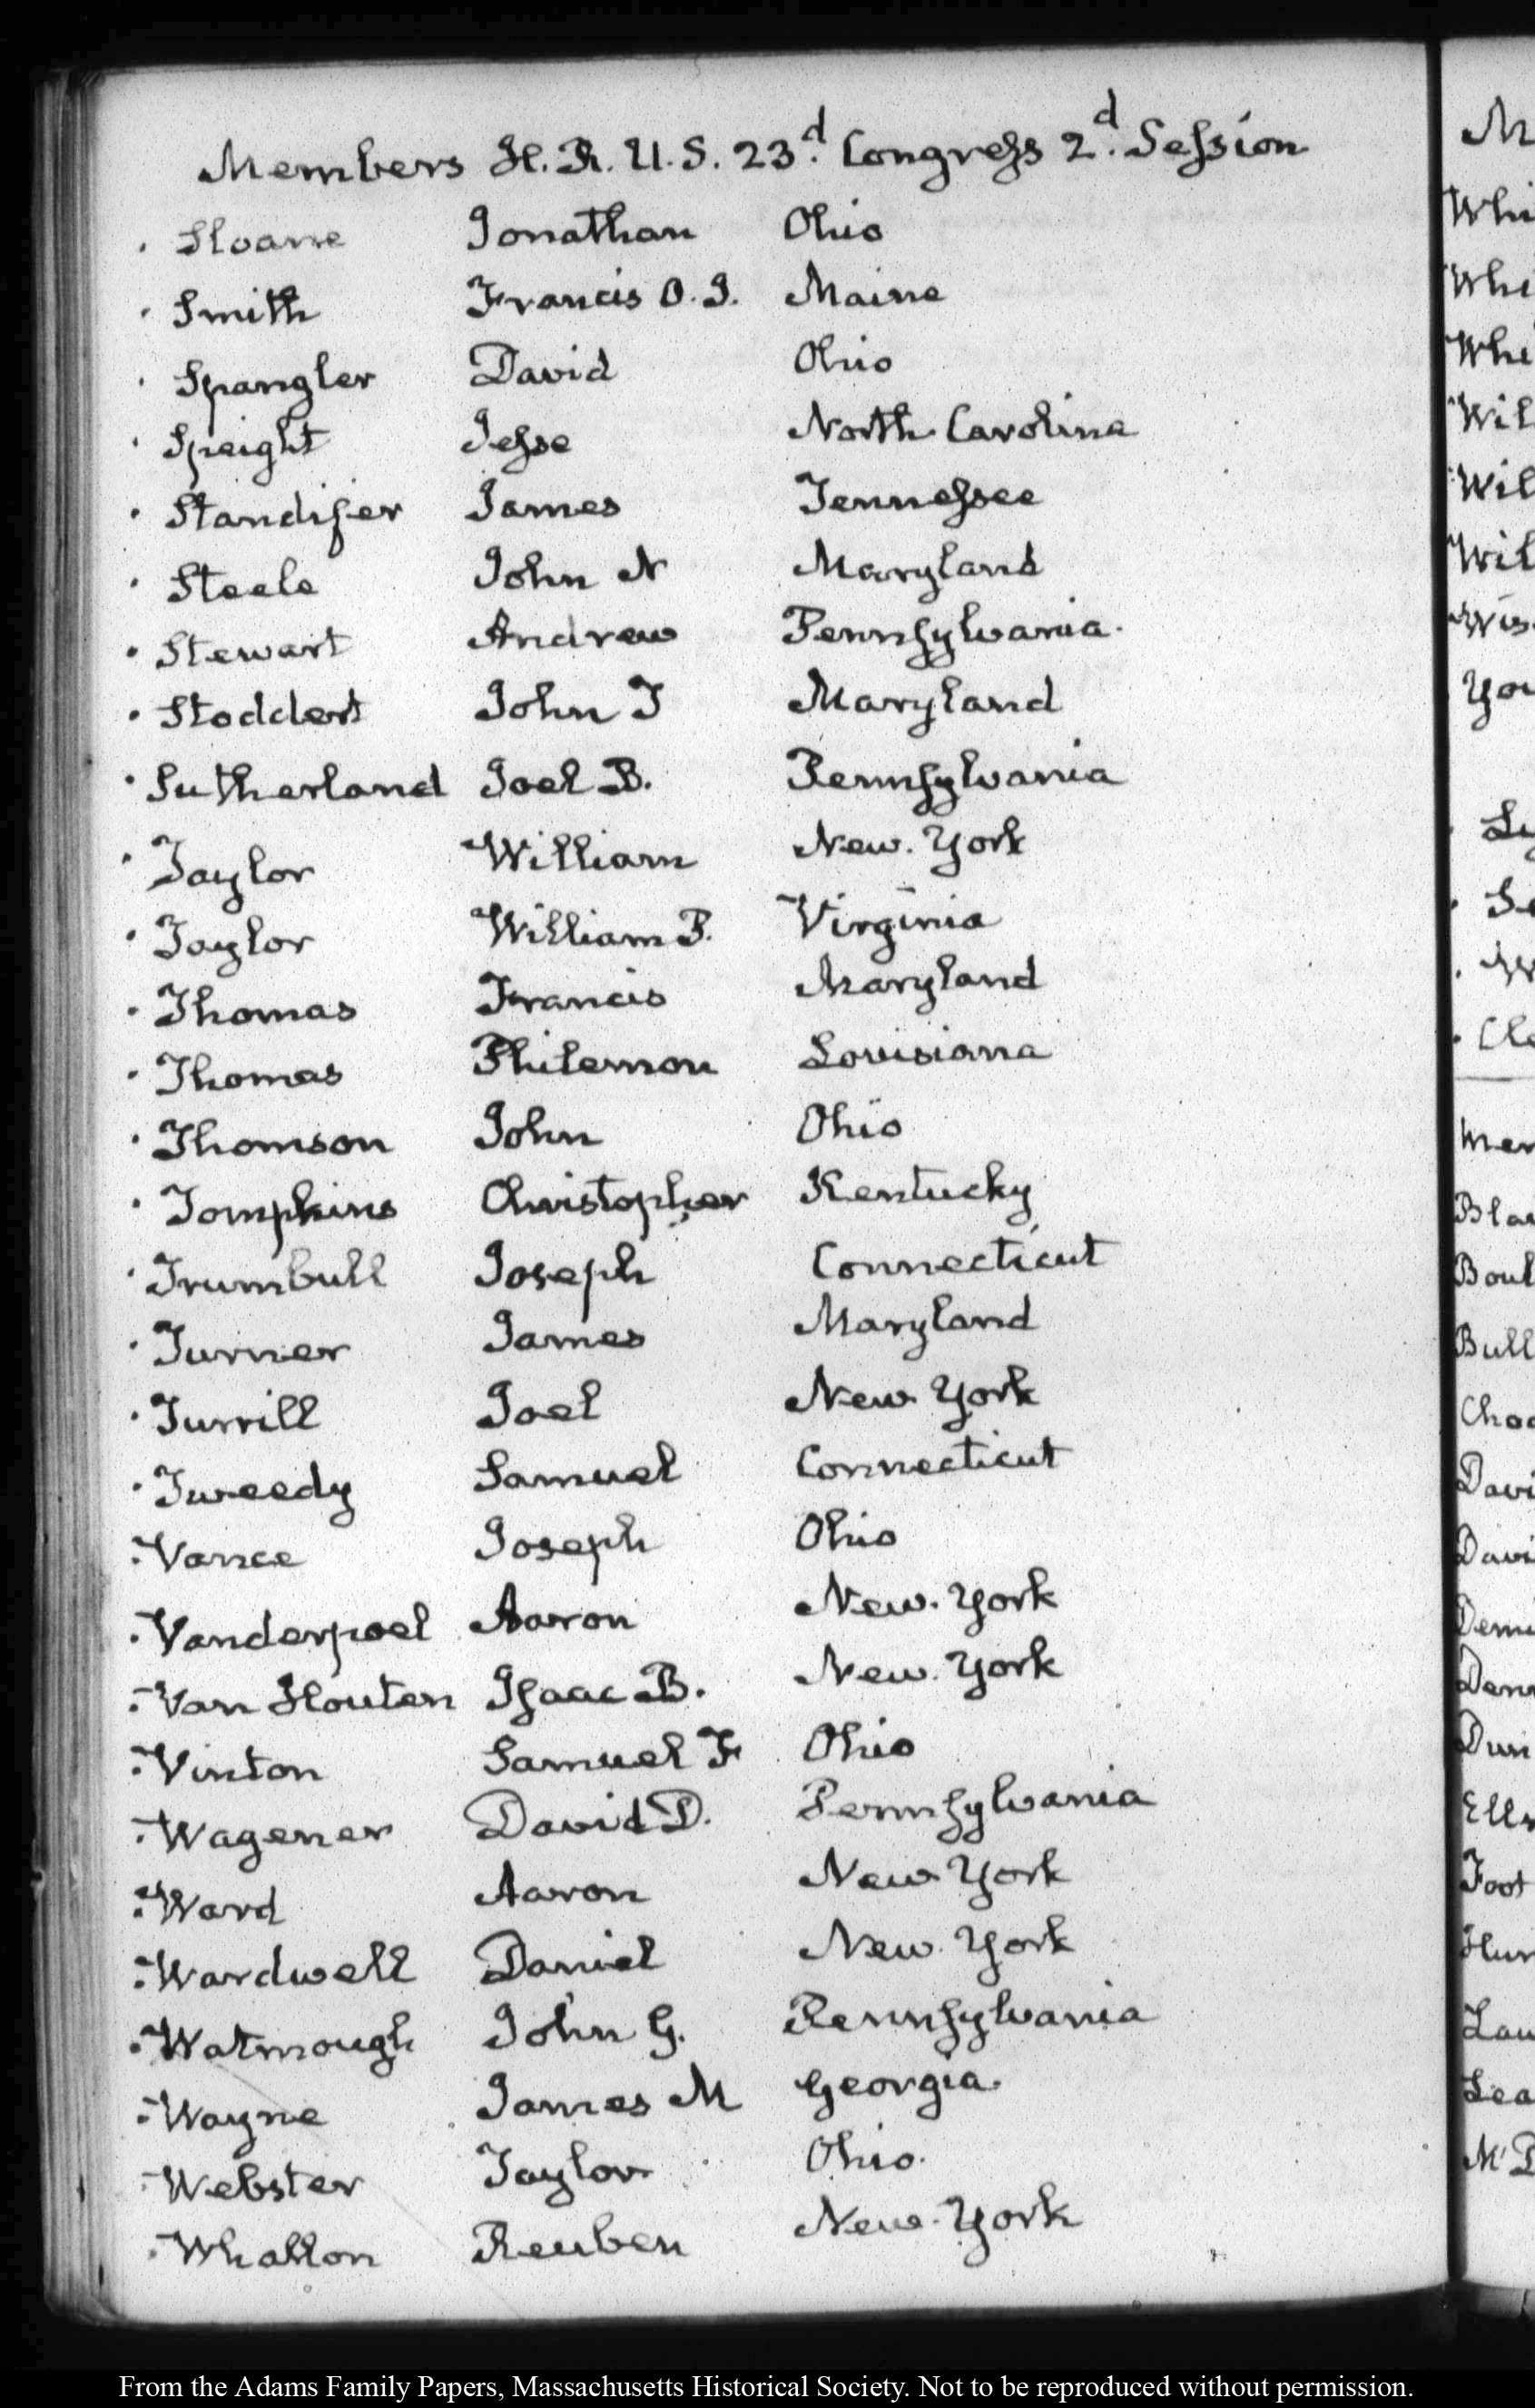 Members H. R. U. S. 23.d Congress 2.d Session
Sloane Jonathan Ohio
Smith Francis O. J. Maine
Spangler David Ohio
Speight Jesse North Carolina
Standifer James Tennessee
Steele John N Maryland
Stewart Andrew Pennsylvania.
Stoddert John T Maryland
Sutherland Joel B. Pennsylvania
Taylor William New. York
Taylor William P. Virginia
Thomas Francis Maryland
Thomas Philemon Louisiana
Thomson John Ohio
Tompkins Christopher Kentucky
Trumbull Joseph Connecticut
Turner James Maryland
Turrill Joel New York
Tweedy Samuel Connecticut
Vance Joseph Ohio
Vanderpoel Aaron New. York
Van Houten Isaac B. New. York
Vinton Samuel F Ohio
Wagener David D. Pennsylvania
Ward Aaron New York
Wardwell Daniel New. York
Watmough John G. Pennsylvania
Wayne James M Georgia.
Webster Taylor Ohio.
Whallon Reuben New. York
M
Whi
Whi
Whi
Wil
Wil
Wil
Wis
You
Cla
Mer
Bla
Boul
Bull
Davi
Davi
Ells
Foot
Lea
From the Adams Family Papers, Massachusetts Historical Society. Not to be reproduced without permission.